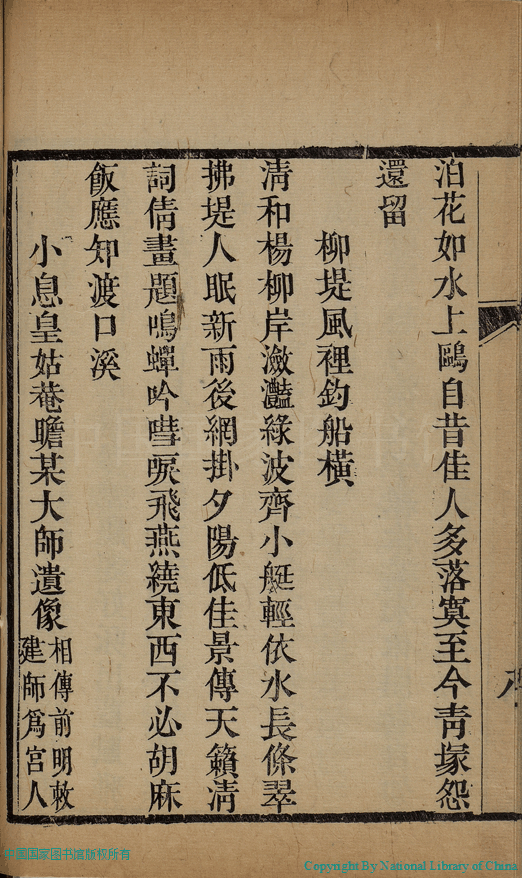 泊花如水上鷗自昔佳人多落寞至今靑塚怨
還留
柳堤風裡釣船橫
淸和楊柳岸瀲灩綠波齊小艇輕依水長條翠
拂堤人眠新雨後網掛夕陽低佳景傳天籟淸
詞倩畫題鳴蟬吟嘒唳飛燕繞東西不必胡麻
飯應知渡口溪
小息皇姑菴瞻某大師遺像相傳前明敕
建師爲宮人
中国国家图书馆版权所有
Copyright By National Library of China